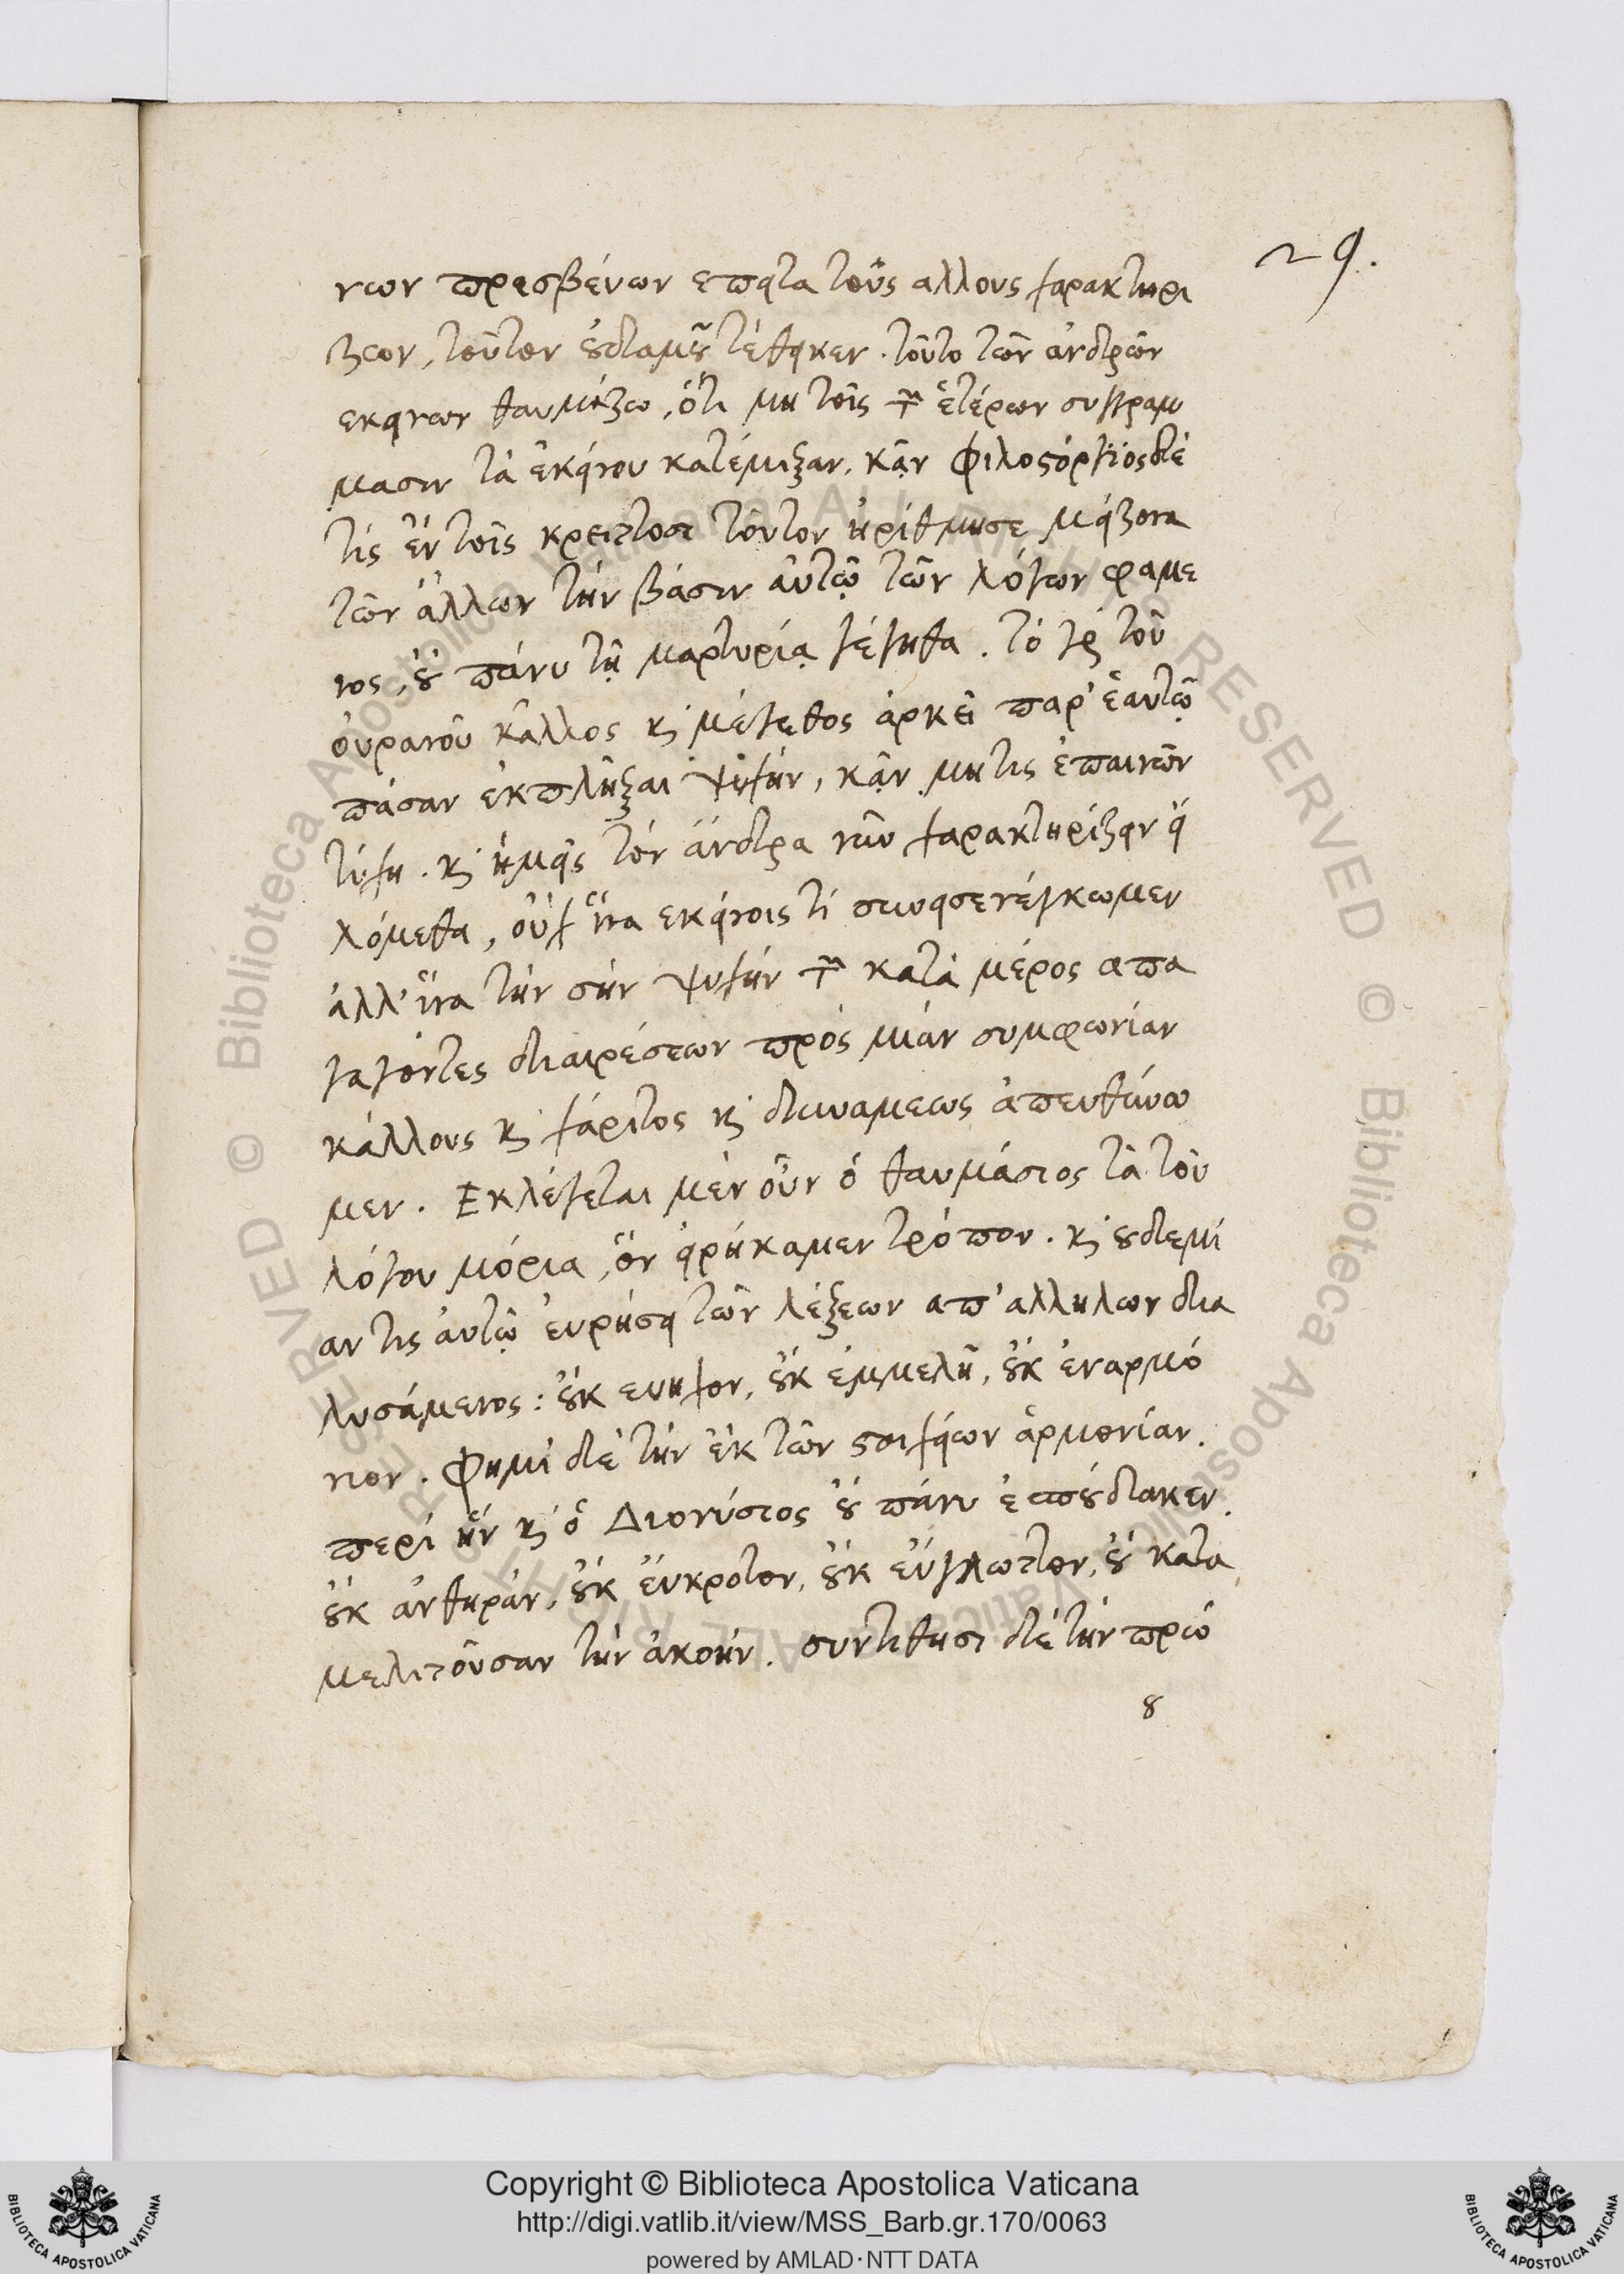 29.
νων πρεσβεύων επειτα τοῦς αλλους χαρακτηρι
ζων, τοῦτον οὐδαμοῦ τέθεικεν. τοῦτο τῶν ἀνδρῶν
εκεινων θαυμάζω, ὅτι μη τοῖς τῶν ἑτέρων συγγραμ
μασιν τὰ ἐκείνου κατέμιξαν. κἂν Φιλοστόργιος δέ
τίς ἐν τοῖς κρειττοσι τοῦτον ἠρίθμησε μείζονα
τῶν ἄλλων τὴν βάσιν αὐτῷ τῶν λόγων φαμε
νος, οὐ πάνυ τῇ μαρτυρίᾳ γέγηθα. τὸ γὰρ τοῦ
οὐρανοῦ κάλλος καὶ μέγεθος ἀρκεῖ παρ' ἑαυτῷ
πάσαν ἐκπλῆξαι ψυχήν, κἂν μη τις ἐπαινῶν
τύχη. καὶ ἡμεῖς τὸν ἄνδρα νῦν χαρακτηρίζειν εἱ
λόμεθα, οὐχ ἵνα εκείνοις τί συνεισενέγκωμεν
ἀλλ' ἵνα τὴν σὴν ψυχήν τῶν κατὰ μέρος απα
γαγόντες διαιρέσεων πρὸς μιάν συμφωνίαν
κάλλους καὶ χάριτος καὶ δυναμεως ἀπευθύνω
μεν. Εκλέγεται μὲν οὖν ὁ θαυμάσιος τὰ τοῦ
λόγου μόρια, ὃν εἰρήκαμεν τρόπον. καὶ οὐδεμί
αν τις ἀυτῷ ἐυρήσει τῶν λέξεων απ' αλληλων δια
λυσάμενος: οὐκ ευηχον, οὐκ ἐμμελῆ, οὐκ ἐναρμό
νιον. Φημὶ δὲ τὴν ἐκ τῶν στοιχείων ἁρμονίαν.
περὶ ἣν καὶ ὁ Διονύσιος οὐ πάνυ ἐσπούδακεν.
οὐκ ἀνθηράν, οὐκ ἔυκροτον, οὐκ εὔγλωττον, οὐ κατα
μελιτοῦσαν τὴν ἀκοήν. συντίθησι δὲ τὴν πρώ
8
Copyright © Biblioteca Apostolica Vaticana
http://digi.vatlib.it/view/MSS_Barb.gr.170/0063
powered by AMLAD·NTT DATA